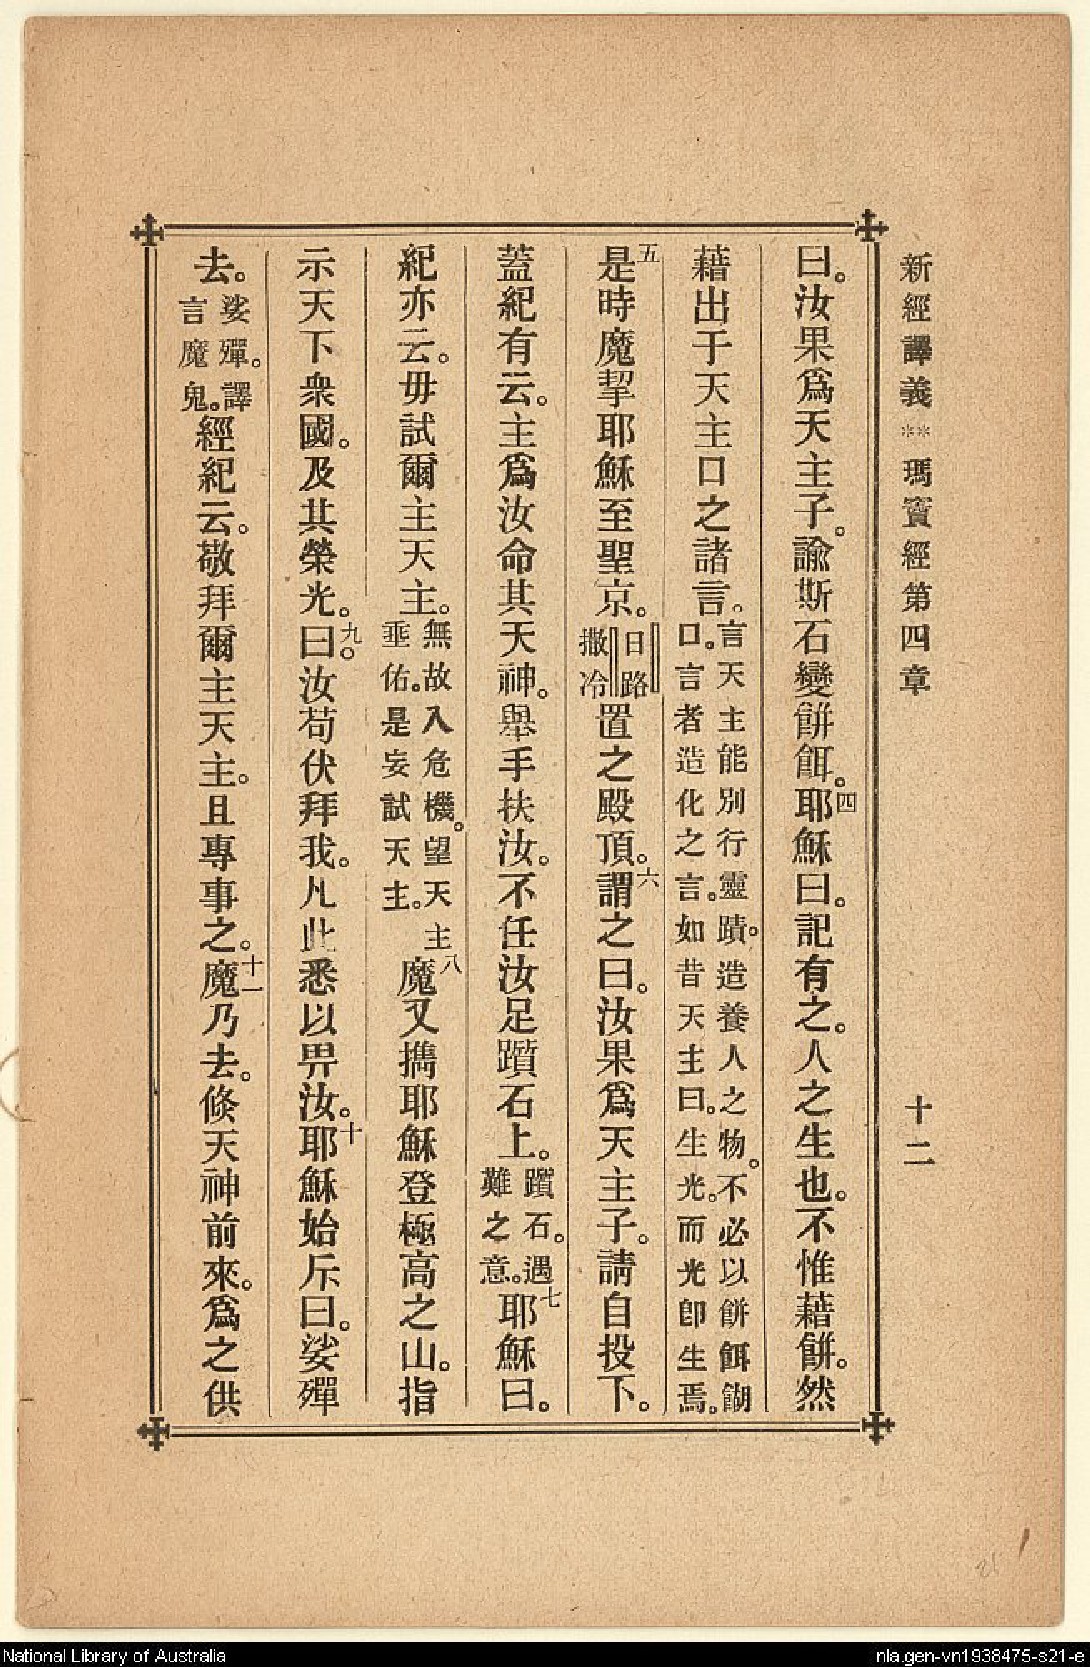 新經譯義**瑪竇經第四章 十二
曰。汝果爲天主子。諭斯石變餠餌。四耶穌曰。記有之。人之生也。不惟藉餠。然
藉出于天主口之諸言。言天主能別行靈蹟。造養人之物。不必以餠餌餬口。言者造化之言。如昔天主曰。生光。而光卽生焉。
五是時魔挈耶穌至聖京。日路撒冷置之殿頂。六謂之曰。汝果爲天主子。請自投下。
蓋紀有云。主爲汝命其天神。舉手扶汝。不任汝足躓石上。躓石。遇難之意。七耶穌曰。
紀亦云。毋試爾主天主。無故入危機。望天主垂佑。是妄試天主。八魔又擕耶穌登極高之山。指
示天下衆國。及其榮光。九。曰汝苟伏拜我。凡此悉以畀汝。十耶穌始斥曰。娑殫
去。娑殫。譯言魔鬼。經紀云。敬拜爾主天主。且專事之。十一魔乃去。倏天神前來。爲之供
National Library of Australia
nla.gen-vn1938475-s21-e